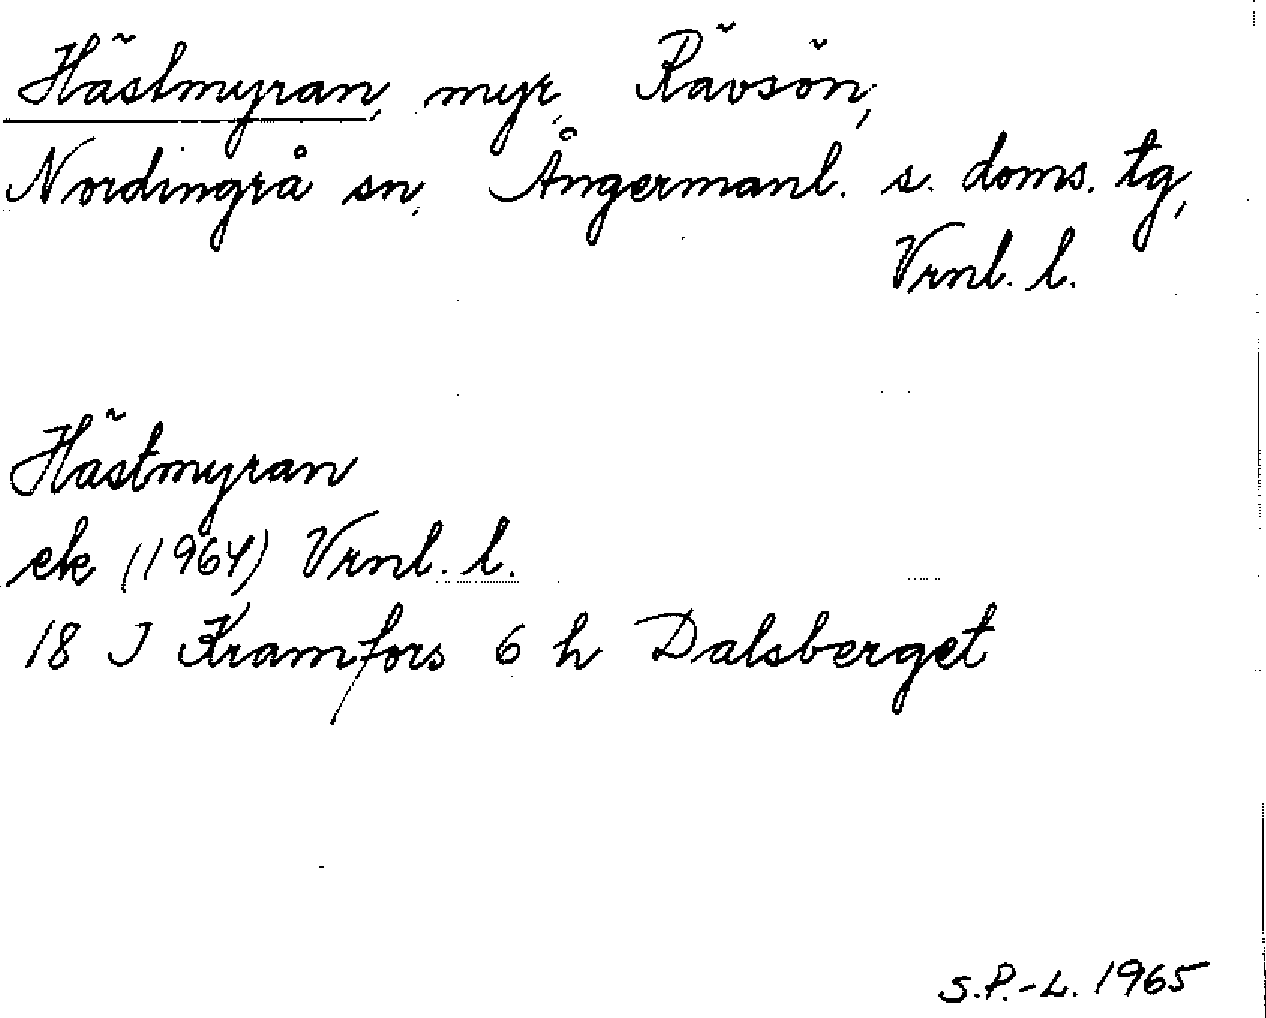 Hästmyran, myr, Rävsön,
Nordingrå sn, Ångermanl. s. doms. tg,
Vrnl. l.
Hästmyran
ek (1964) Vrnl. l.
18 J Kramfors 6 h Dalsberget
S.P.-L. 1965